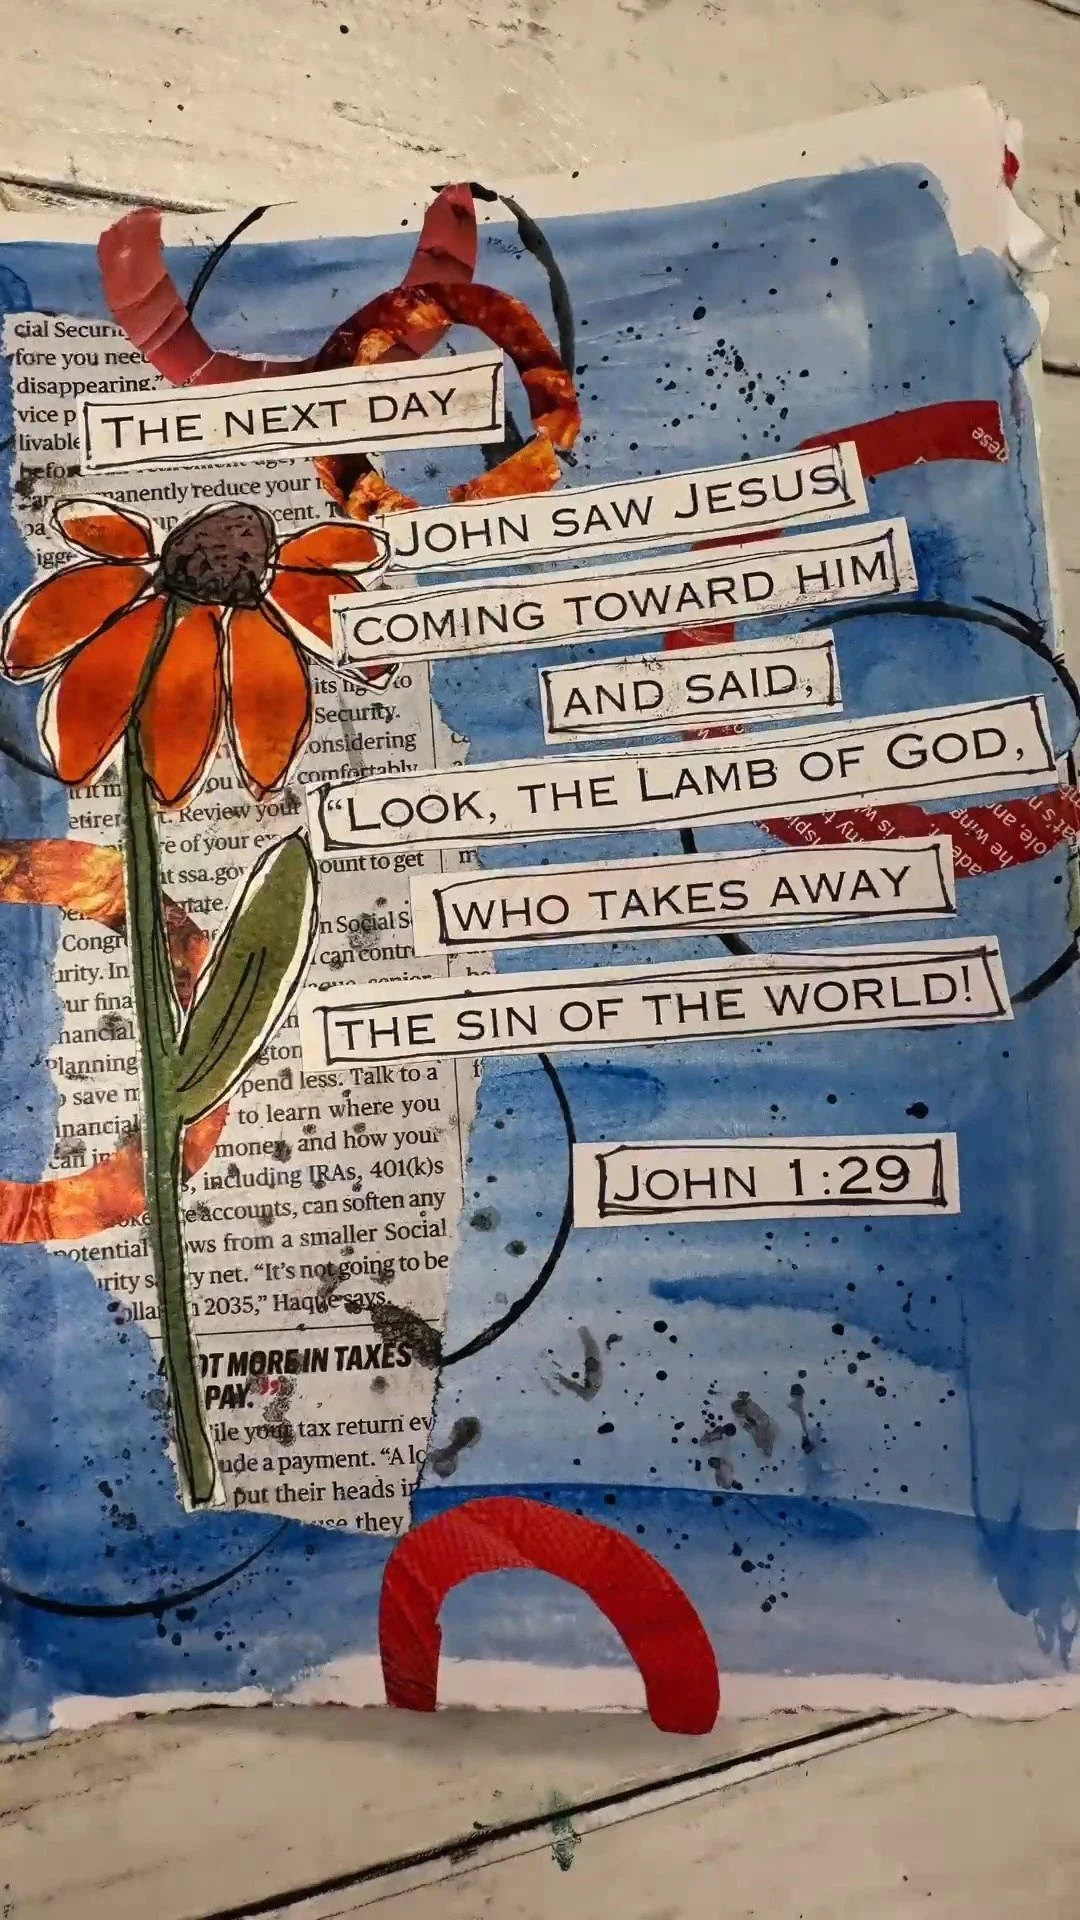 THE NEXT DAY
JOHN SAW JESUS
COMING TOWARD HIM
AND SAID,
"LOOK, THE LAMB OF GOD,
WHO TAKES AWAY
THE SIN OF THE WORLD!
JOHN 1:29
cial
disappearing."
manently reduce your
cent.
to
Security.
onsidering
comfortably
Review your
re of your
at ssa.gov
ount to get
Social
can
pend less. Talk to a
to learn where you
money, and how your
including IRAs, 401(k)s
accounts, can soften any
potential
ws from a smaller Social
y net. "It's not going to be
2035," Haque says.
OT MORE IN TAXES
PAY."
ile your tax return
ude a payment. "A
put their heads
they
Planning